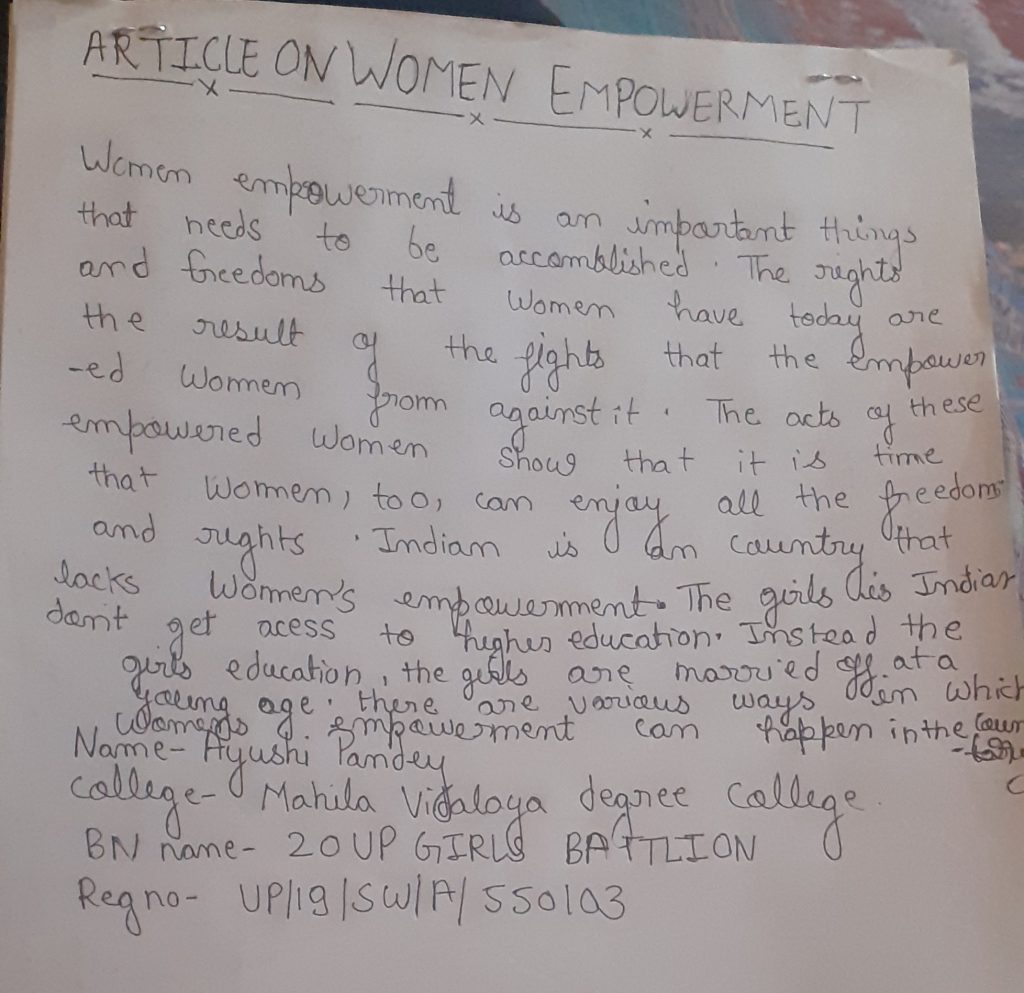 ARTICLE ON WOMEN EMPOWERMENT
Women empowerment is an important things
that needs to be accomblished. The rights
and freedoms that women have today are
the result of the fights that the empower
-ed women from against it. The acts of these
empowered women show that it is time
that women, too, can enjoy all the freedoms
and rights. Indian is an country that
lacks women's empowerment. The girls is Indian
don't get acess to higher education. Instead the
girls education, the girls are married off at a
young age. there are various ways in which
womens empowerment can happen in the Coun
Name- Ayushi Pandey
College- Mahila Vidalaya degree College.
BN name- 20 UP GIRLS BATTLION
Reg no- UP/19/SW/A/550103